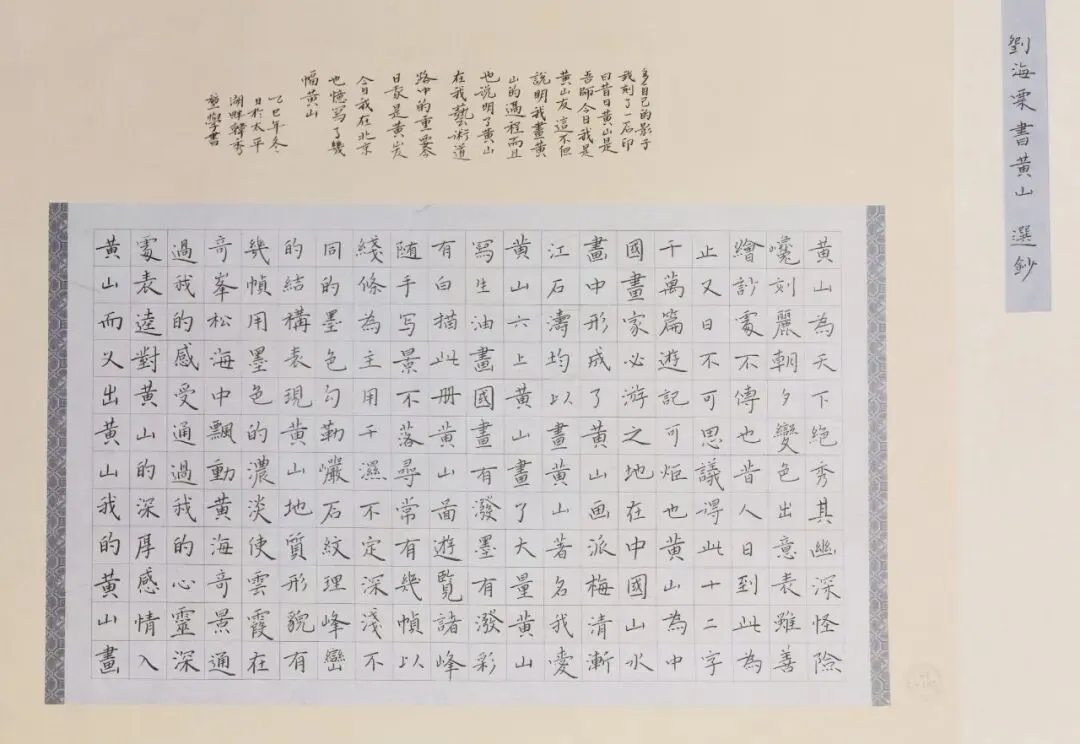 劉海粟書黃山 選鈔
黄山為天下絶秀其幽深怪險
巉刻麗朝夕變色出意表雖善
繪訬處不傳也昔人日到此為
止又日不可思議得此十二字
千萬篇遊記可炬也黄山為中
國畫家必游之地在中國山水
畫中形成了黄山画派梅清漸
江石濤均以畫黄山著名我愛
黄山六上黄山畫了大量黄山
寫生油畫國畫有潑墨有潑彩
有白描此册黄山面遊覽諸峰
随手写景不落尋常有幾幀以
綫條為主用千濕不定深淺不
同的墨色勾勒巖石紋理峰巒
的結構表現黄山地質形貌有
幾幀用墨色的濃淡使雲霞在
奇峯松海中飄動黄海奇景通
過我的感受通過我的心靈深
處表逹對黄山的深厚感情入
黄山而又出黄山我的黄山畫
多自己的影子
我刻了一石印
曰昔日黄山是
吾師今日我是
黄山友這不但
說明我畫黄
山的過程而且
也說明了黄山
在我藝術道
路中的重要
日是黄炭
今日我在北京
也憶寫了幾
幅黄山
乙巳年冬
日於太平
湖畔韓秀
學書